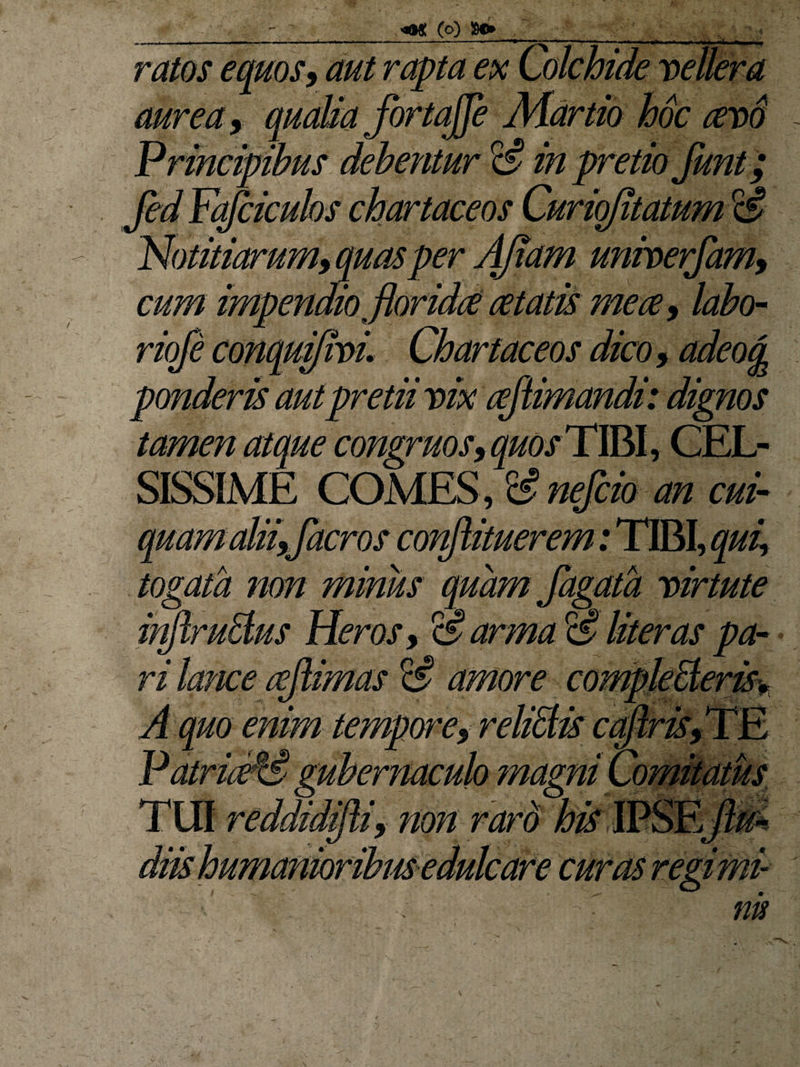 (o)
ratos equos, aut rapta ex Colchide vellera
aurea, qualia fortaſſe Martio hôc ævô
Principibus debentur & in pretio ſunt;
ſed Faſciculos chartaceos Curioſitatum &
Notitiarum, quas per Aſiam univerſam,
cum impendio floridæ ætatis meæ, labo-
rioſè conquiſivi. Chartaceos dico, adeoq́;
ponderis aut pretii vix æſtimandi: dignos
tamen atque congruos, quos TIBI, CEL-
SISSIME COMES, & neſcio an cui-
quam alii, ſacros conſtituerem: TIBI, qui,
togatâ non minùs quàm ſagatâ virtute
inſtructus Heros, & arma & literas pa-
ri lance æſtimas & amore complecteris.
A quo enim tempore, relictis caſtris, TE
Patriæ & gubernaculo magni Comitatûs
TUI reddidiſti, non rarò his IPSE ſtu-
diis humanioribus edulcare curas regimi-
nis